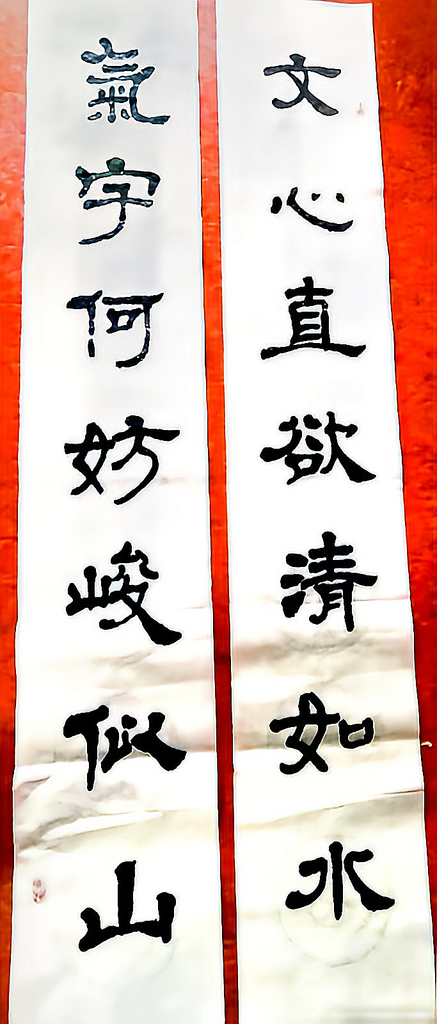 文心直欲清如水
氣宇何妨峻似山